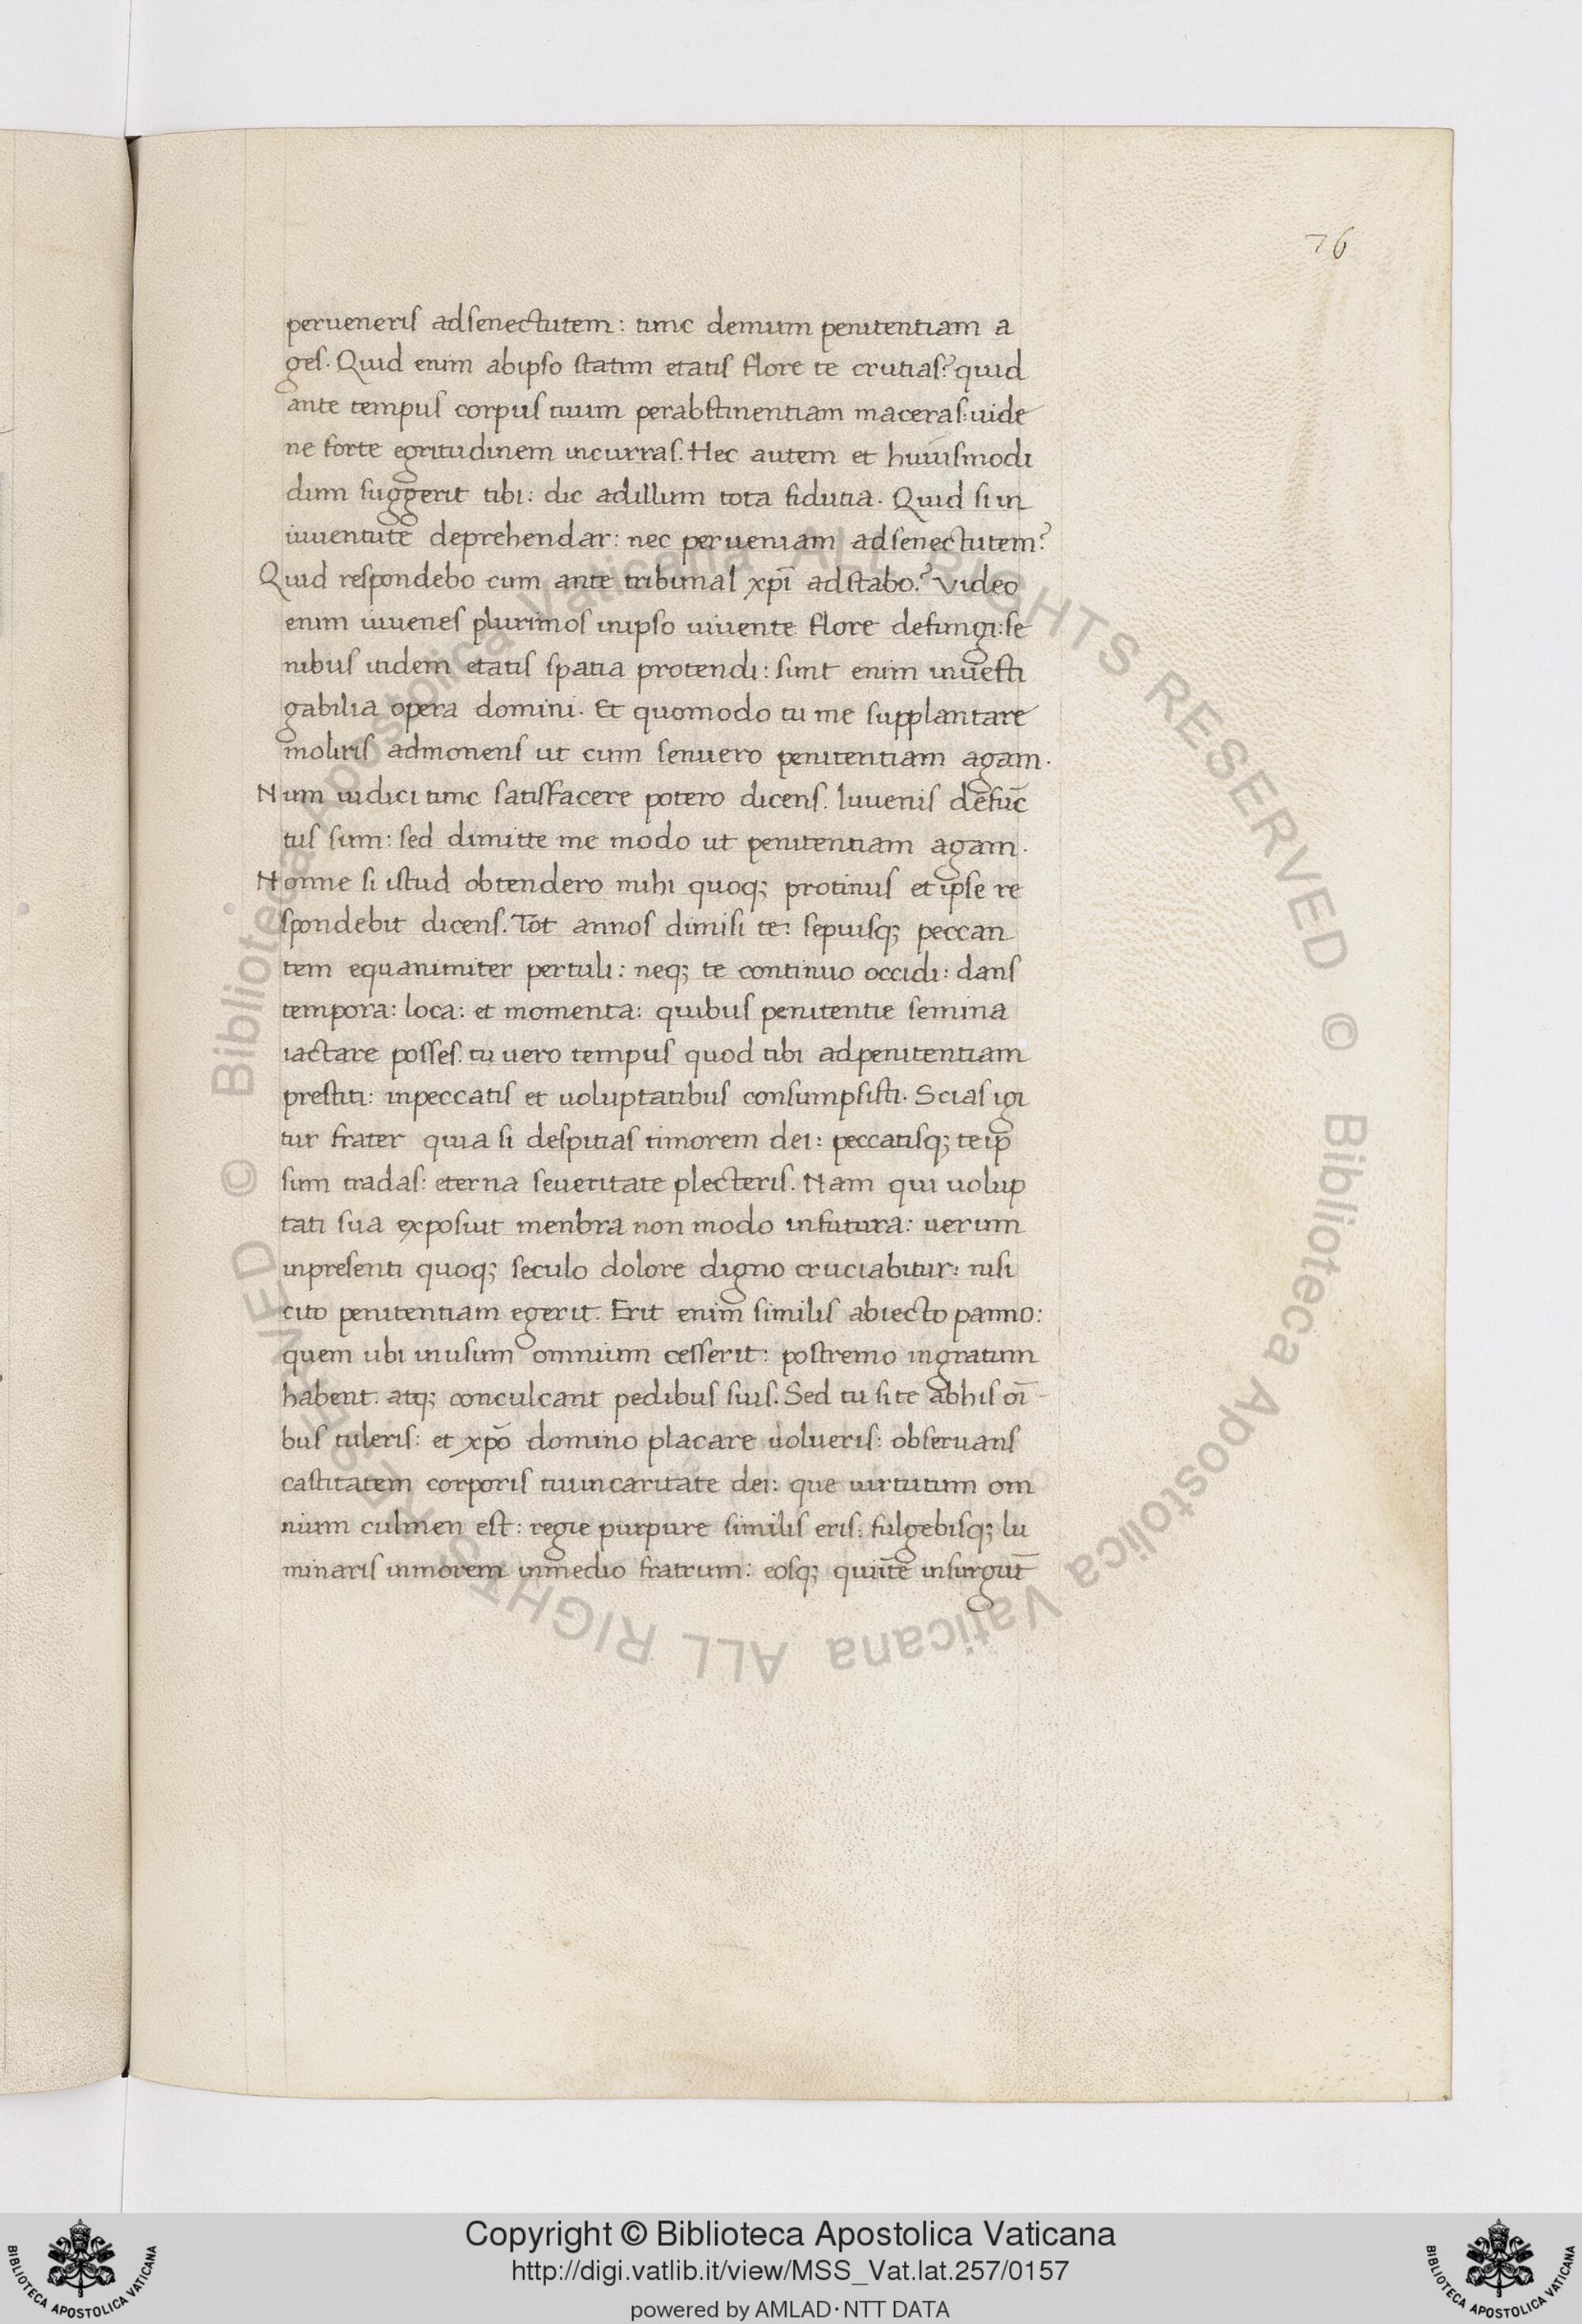 76
perueneris adsenectutem: tunc demum penitentiam a
ges. Quid enim abipso statim etatis flore te crutias? quid
ante tempus corpus tuum perabstinentiam maceras: uide
ne forte egritudinem incurras. Hec autem et huiusmodi
dum suggerit tibi: dic adillum tota fidutia. Quid si in
iuuentute deprehendar: nec perueniam adsenectutem?
Quid respondebo cum ante tribunal xp̄i adstabo? Video
enim iuuenes plurimos inipso uiuente flore defungi: se
nibus itidem etatis spatia protendi: sunt enim inuesti
gabilia opera domini. Et quomodo tu me supplantare
moliris admonens ut cum senuero penitentiam agam.
Num iudici tunc satisfacere potero dicens. Iuuenis defūc
tus sum: sed dimitte me modo ut penitentiam agam.
Nonne si istud obtendero mihi quoq; protinus et ipse re
spondebit dicens. Tot annos dimisi te: sepiusq; peccan
tem equanimiter pertuli: neq; te continuo occidi: dans
tempora: loca: et momenta: quibus penitentie semina
iactare posses. tu uero tempus quod tibi adpenitentiam
prestiti: inpeccatis et uoluptatibus consumpsisti. Scias igi
tur frater quia si despitias timorem dei: peccatisq; te ip
sum tradas: eterna seueritate plecteris. Nam qui uolup
tati sua exposuit menbra non modo infutura: uerum
inpresenti quoq; seculo dolore digno cruciabitur: nisi
cito penitentiam egerit. Erit enim similis abiecto panno:
quem ubi inusum omnium cesserit: postremo ingratum
habent. atq; conculcant pedibus suis. Sed tu si te abhis oī
bus tuleris: et xp̄o domino placare uolueris: obseruans
castitatem corporis tui incaritate dei: que uirtutum om
nium culmen est: regie purpure similis eris: fulgebisq; lu
minaris inmorem inmedio fratrum: eosq; qui īte insurgūt
© Biblioteca Apostolica Vaticana ALL RIGHTS RESERVED © Biblioteca Apostolica Vaticana ALL RIGHTS RESERVED
Copyright © Biblioteca Apostolica Vaticana
http://digi.vatlib.it/view/MSS_Vat.lat.257/0157
powered by AMLAD·NTT DATA
BIBLIOTECA APOSTOLICA VATICANA
BIBLIOTECA APOSTOLICA VATICANA